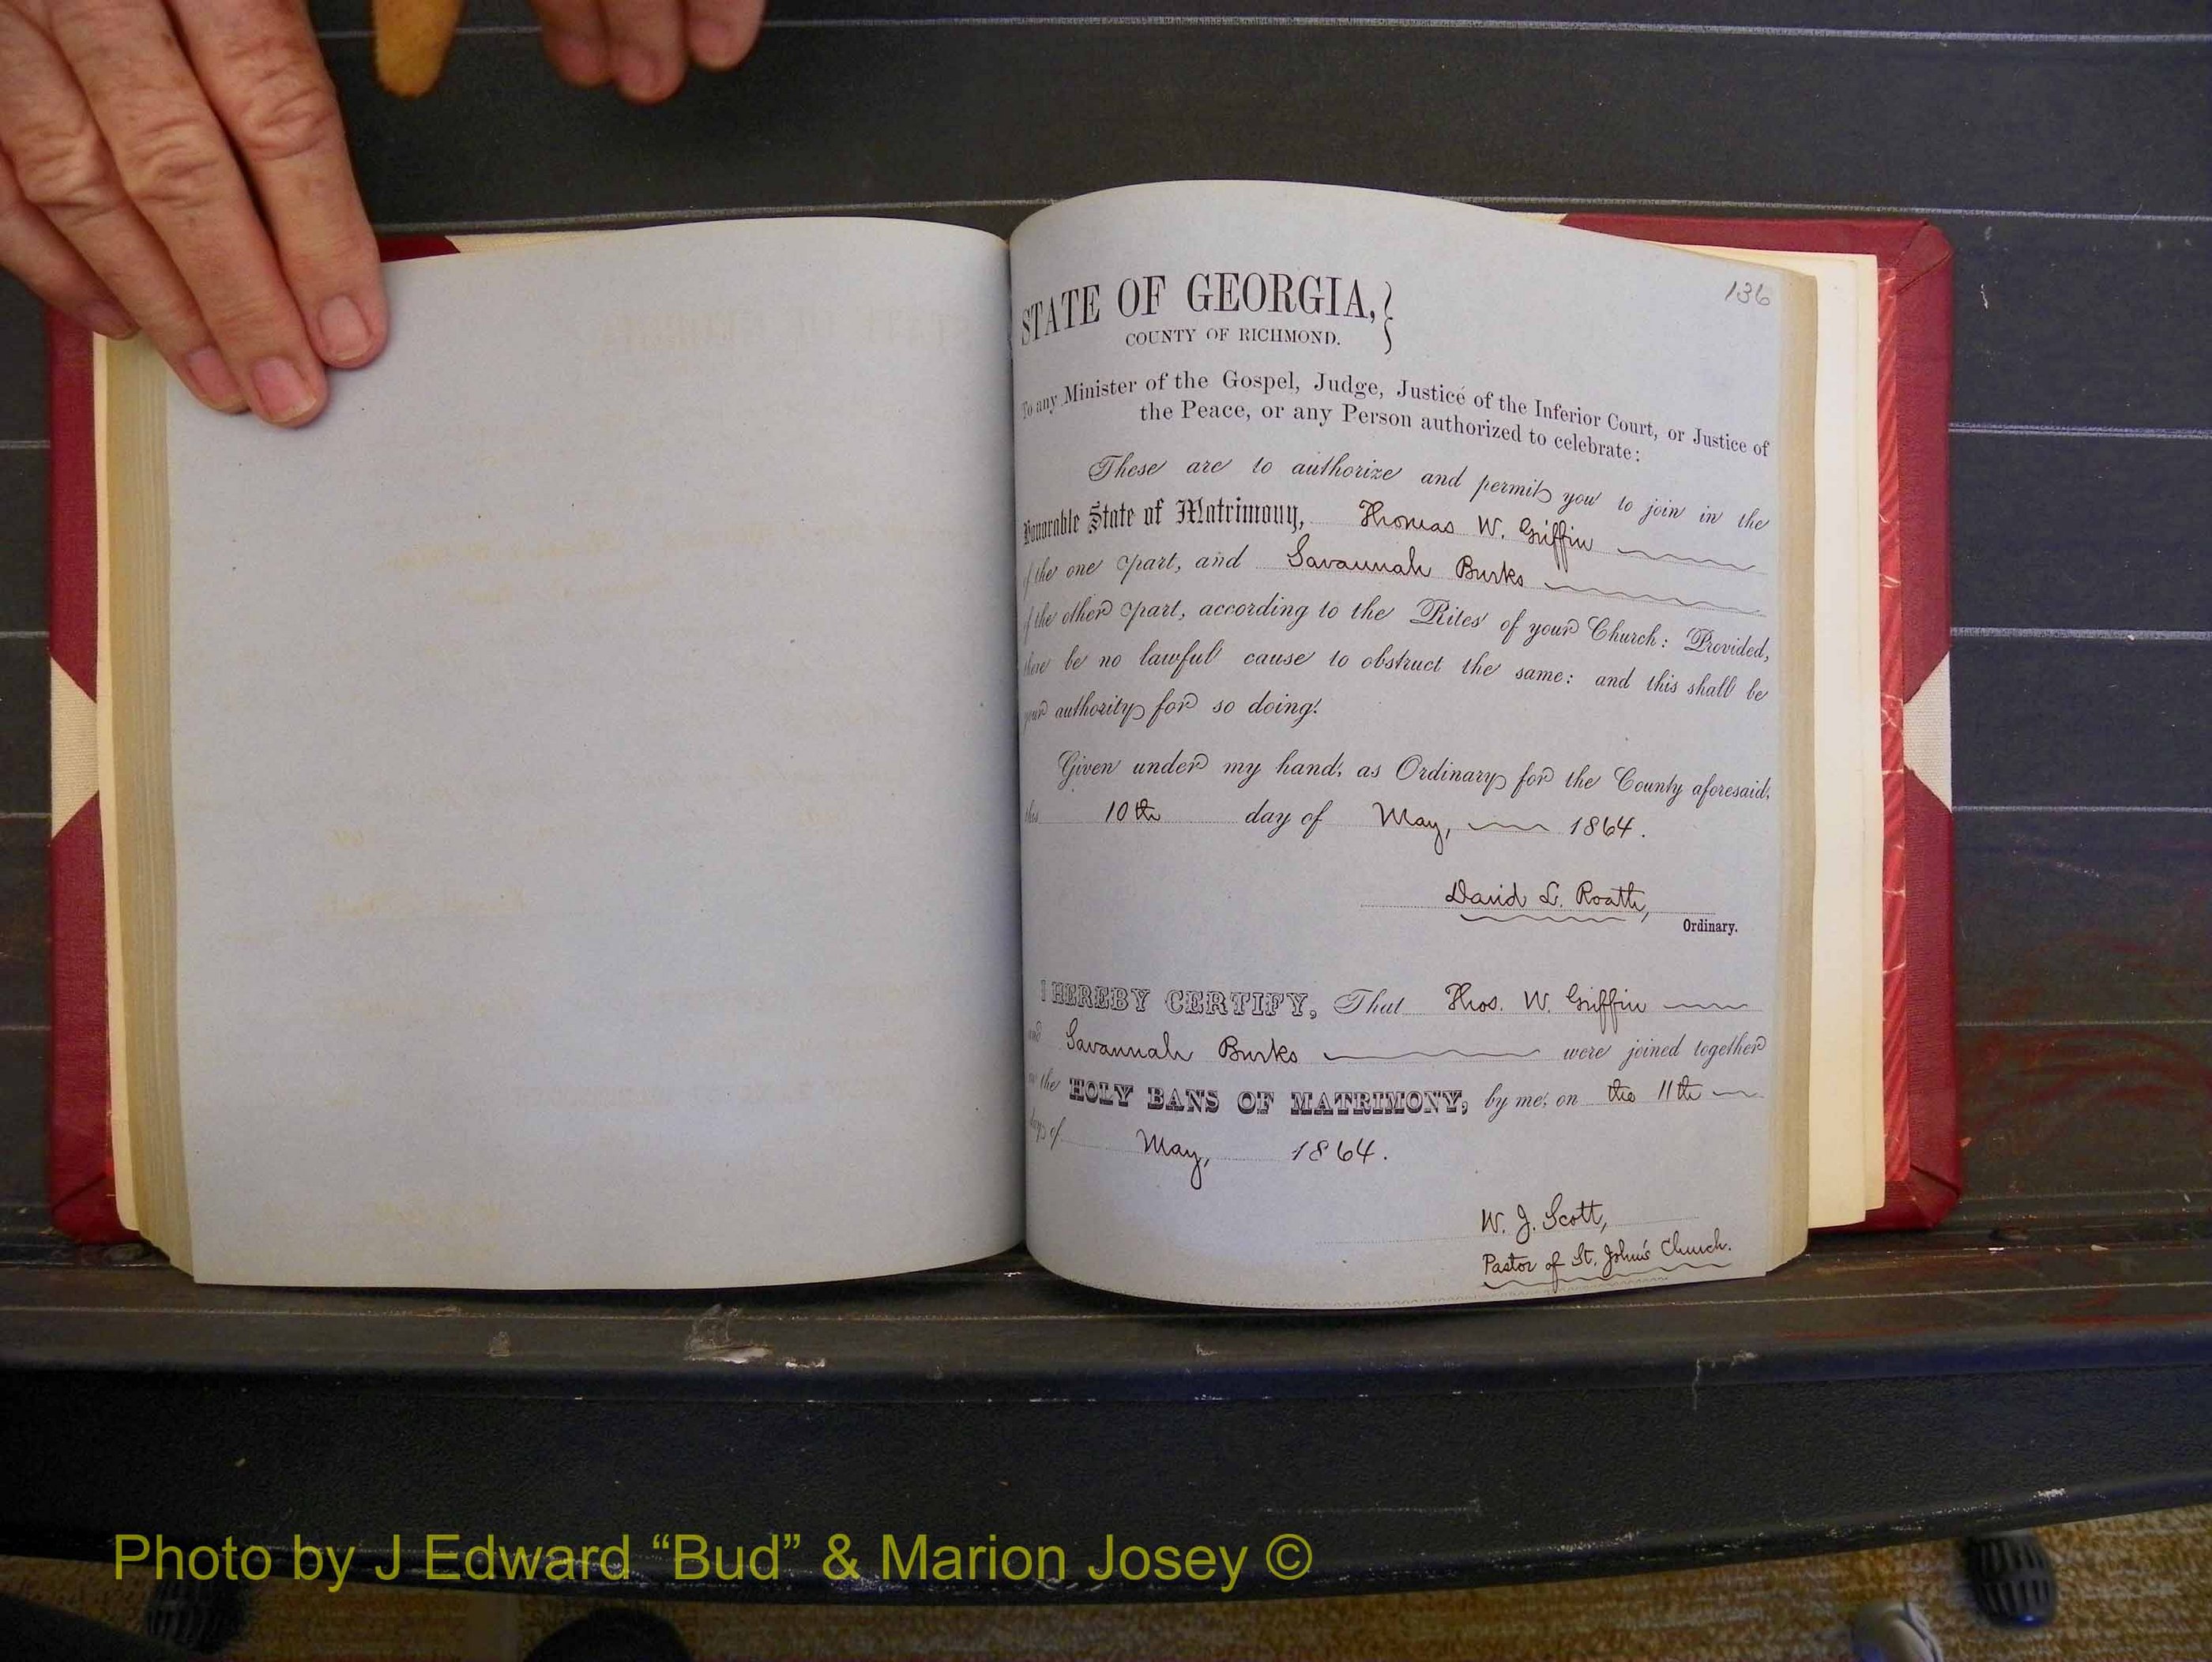 136
STATE OF GEORGIA,
COUNTY OF RICHMOND.
To any Minister of the Gospel, Judge, Justice of the Inferior Court, or Justice of
the Peace, or any Person authorized to celebrate:
These are to authorize and permit you to join in the
Honorable State of Matrimony, Thomas W. Griffin
of the one part, and Savannah Burks
of the other part, according to the Rites of your Church: Provided,
there be no lawful cause to obstruct the same: and this shall be
your authority for so doing.
Given under my hand, as Ordinary for the County aforesaid,
this 10th day of May, 1864.
David L. Roath,
Ordinary.
I HEREBY CERTIFY, That Thos. W. Griffin
and Savannah Burks were joined together
in the HOLY BANS OF MATRIMONY, by me, on the 11th
day of May, 1864.
W. J. Scott,
Pastor of St. John's Church.
Photo by J Edward “Bud” & Marion Josey ©